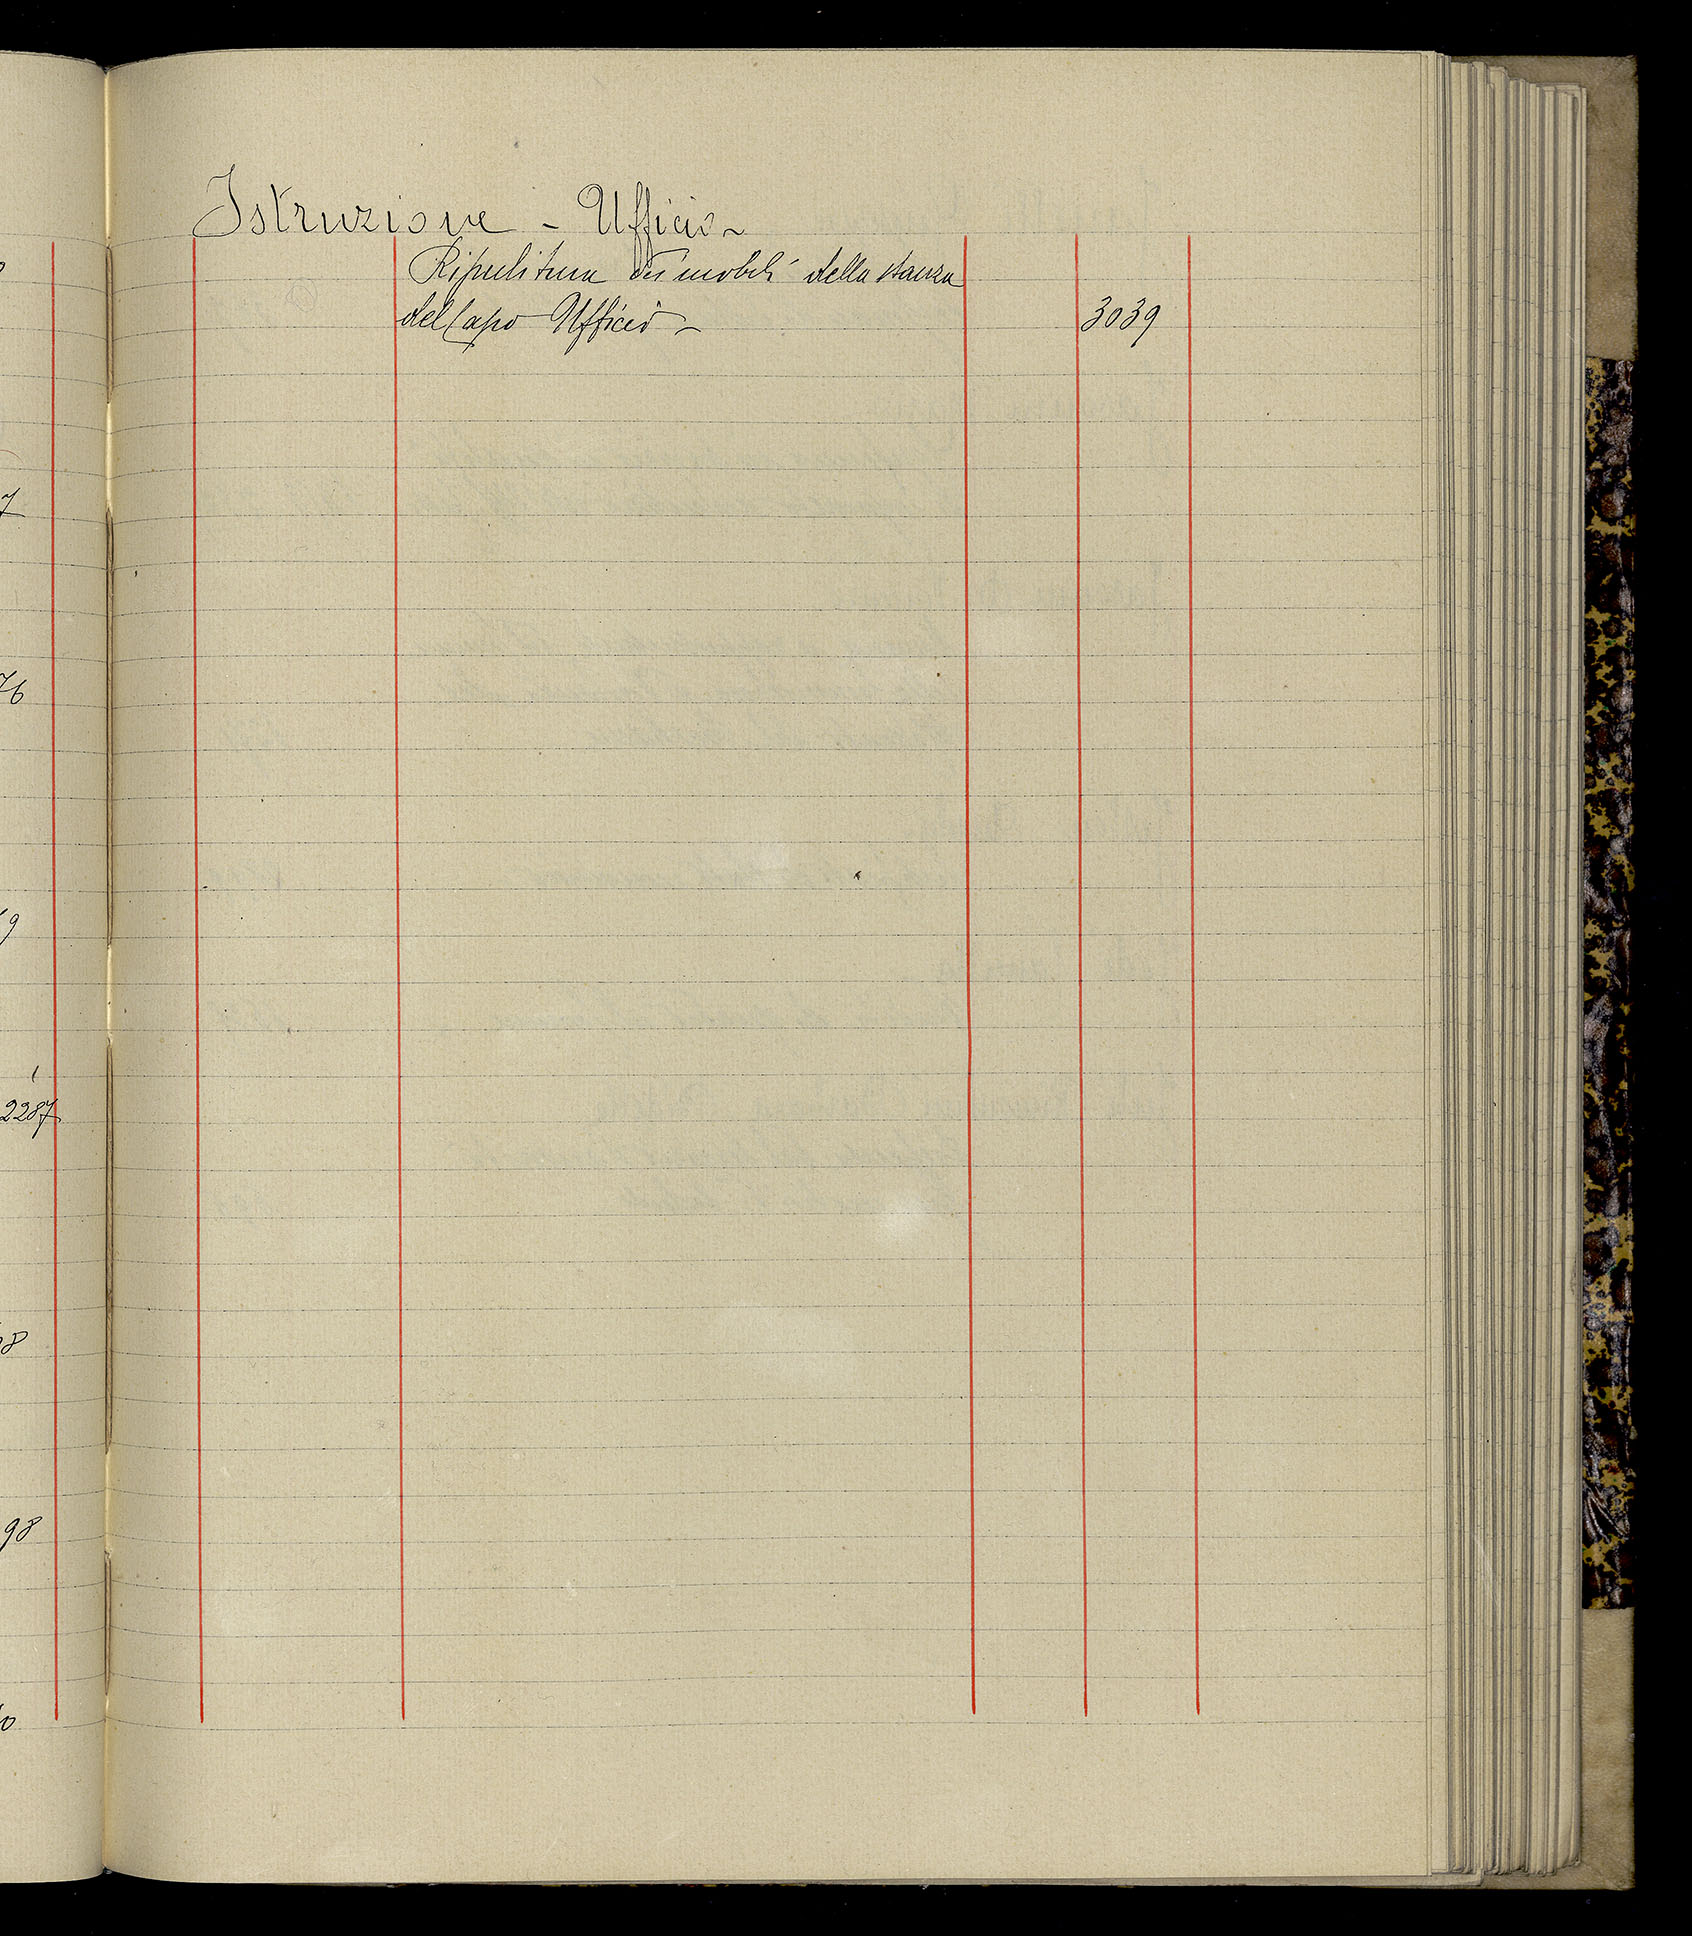 Istruzione - Ufficio -
Ripulitura dei mobili della stanza
del Capo Ufficio - 3039
7
76
9
2287
8
98
0